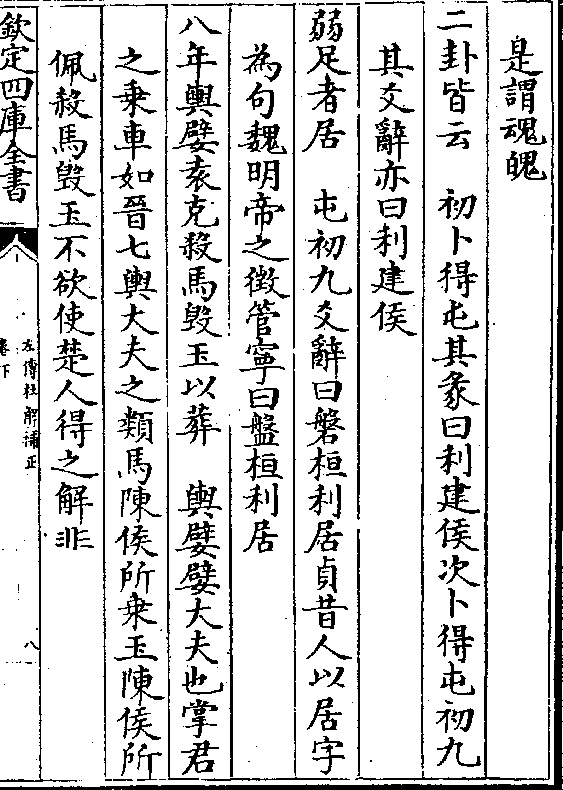 是謂魂魄
二卦皆云　初卜得屯其彖曰利建侯次卜得屯初九
其爻辭亦曰利建侯
弱足者居　屯初九爻辭曰磐桓利居貞昔人以居字
為句魏明帝之徵管寧曰盤桓利居
八年輿嬖袁克殺馬毀玉以葬　輿嬖嬖大夫也掌君
之乗車如晉七輿大夫之類馬陳侯所乗玉陳侯所
佩殺馬毀玉不欲使楚人得之解非
欽定四庫全書
左傳杜解補正
卷下
八